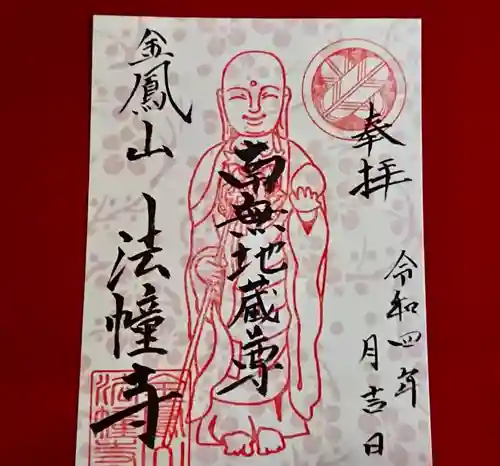 奉拝
令和四年
月吉日
南無地蔵尊
金鳳山
法幢寺